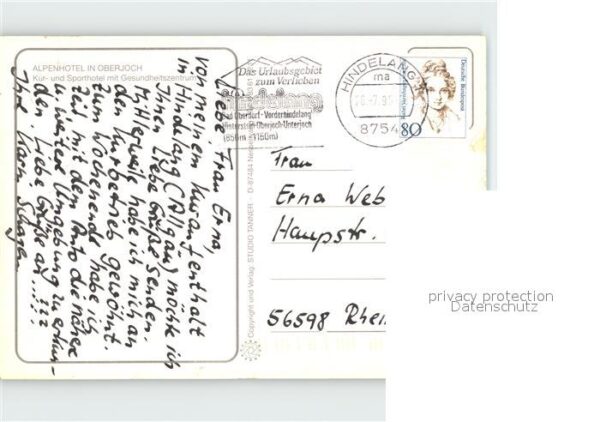 ALPENHOTEL IN OBERJOCH
Kur- und Sporthotel mit Gesundheitszentrum
Liebe Frau Erna,
von meinem Kuraufenthalt
in Hindelang (Allgäu) möchte ich
Ihnen liebe Grüße senden.
Mittlerweile habe ich mich an
den Kurbetrieb gewöhnt.
Zum Wochenende habe ich
Zeit mit dem Auto die nähere
u. weitere Umgebung zu erkun-
den. Liebe Grüße an
Ihre Karin
Copyright und Verlag: STUDIO TANNER
Das Urlaubsgebiet
zum Verlieben
Hindelang
Bad Oberdorf - Vorderhindelang
Hinterstein-Oberjoch-Unterjoch
(850m - 1150m)
HINDELANG
ma
8754
Deutsche Bundespost
80
Frau
Erna Web
Haupstr.
56598 Rhei
privacy protection
Datenschutz